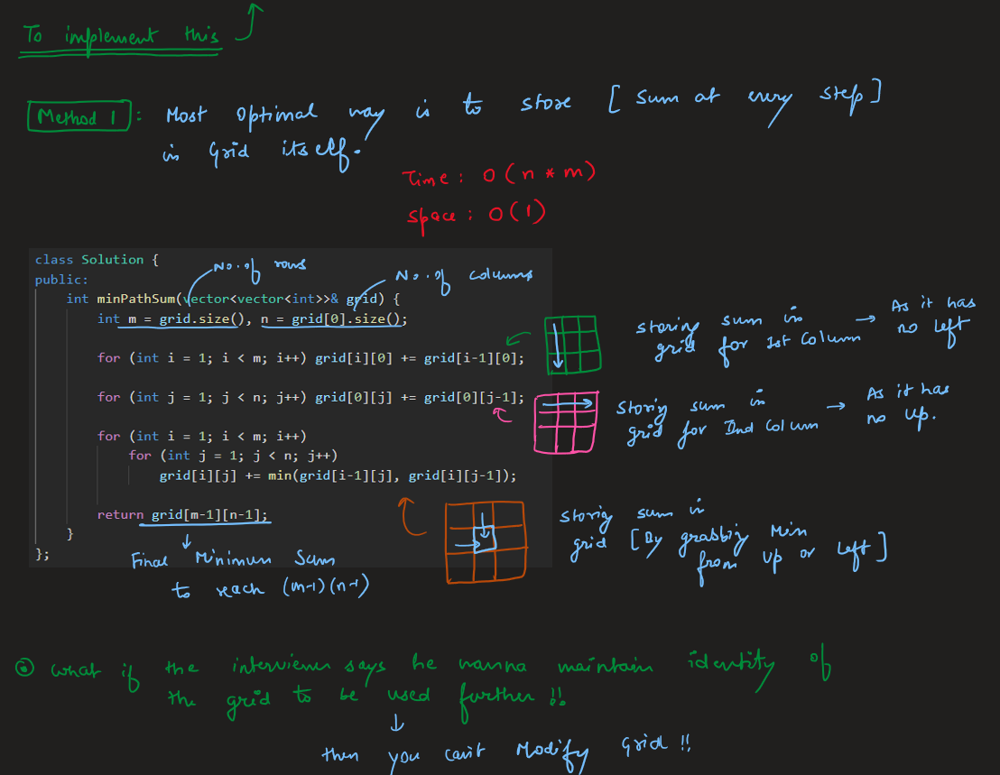 To implement this
Method 1 : Most Optimal way is to store [ sum at every step ]
in Grid itself.
Time : O ( n * m )
space : O ( 1 )
class Solution {
public:
No. of rows
No. of columns
int minPathSum(vector<vector<int>>& grid) {
int m = grid.size(), n = grid[0].size();
for (int i = 1; i < m; i++) grid[i][0] += grid[i-1][0];
storing sum in
grid for Ist Column → As it has
no left
for (int j = 1; j < n; j++) grid[0][j] += grid[0][j-1];
storig sum in
grid for IInd Column → As it has
no up.
for (int i = 1; i < m; i++)
for (int j = 1; j < n; j++)
grid[i][j] += min(grid[i-1][j], grid[i][j-1]);
storig sum in
grid [ By grabbig Min
from up or left ]
return grid[m-1][n-1];
}
};
Final Minimum Sum
to reach (m-1)(n-1)
what if the interviewer says he wanna maintain identity of
the grid to be used further !!
then you can't Modify Grid !!